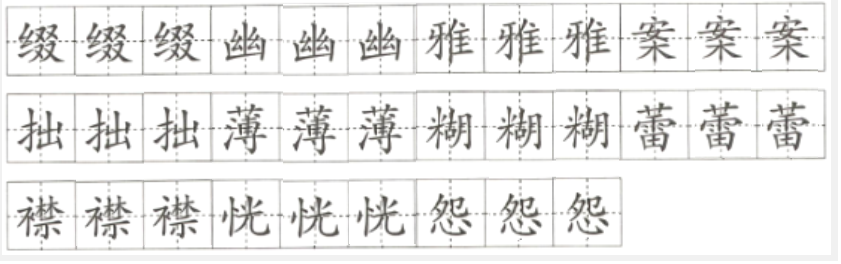 缀缀缀幽幽幽雅雅雅案案案
拙拙拙薄薄薄糊糊糊蕾蕾蕾
襟襟襟恍恍恍怨怨怨